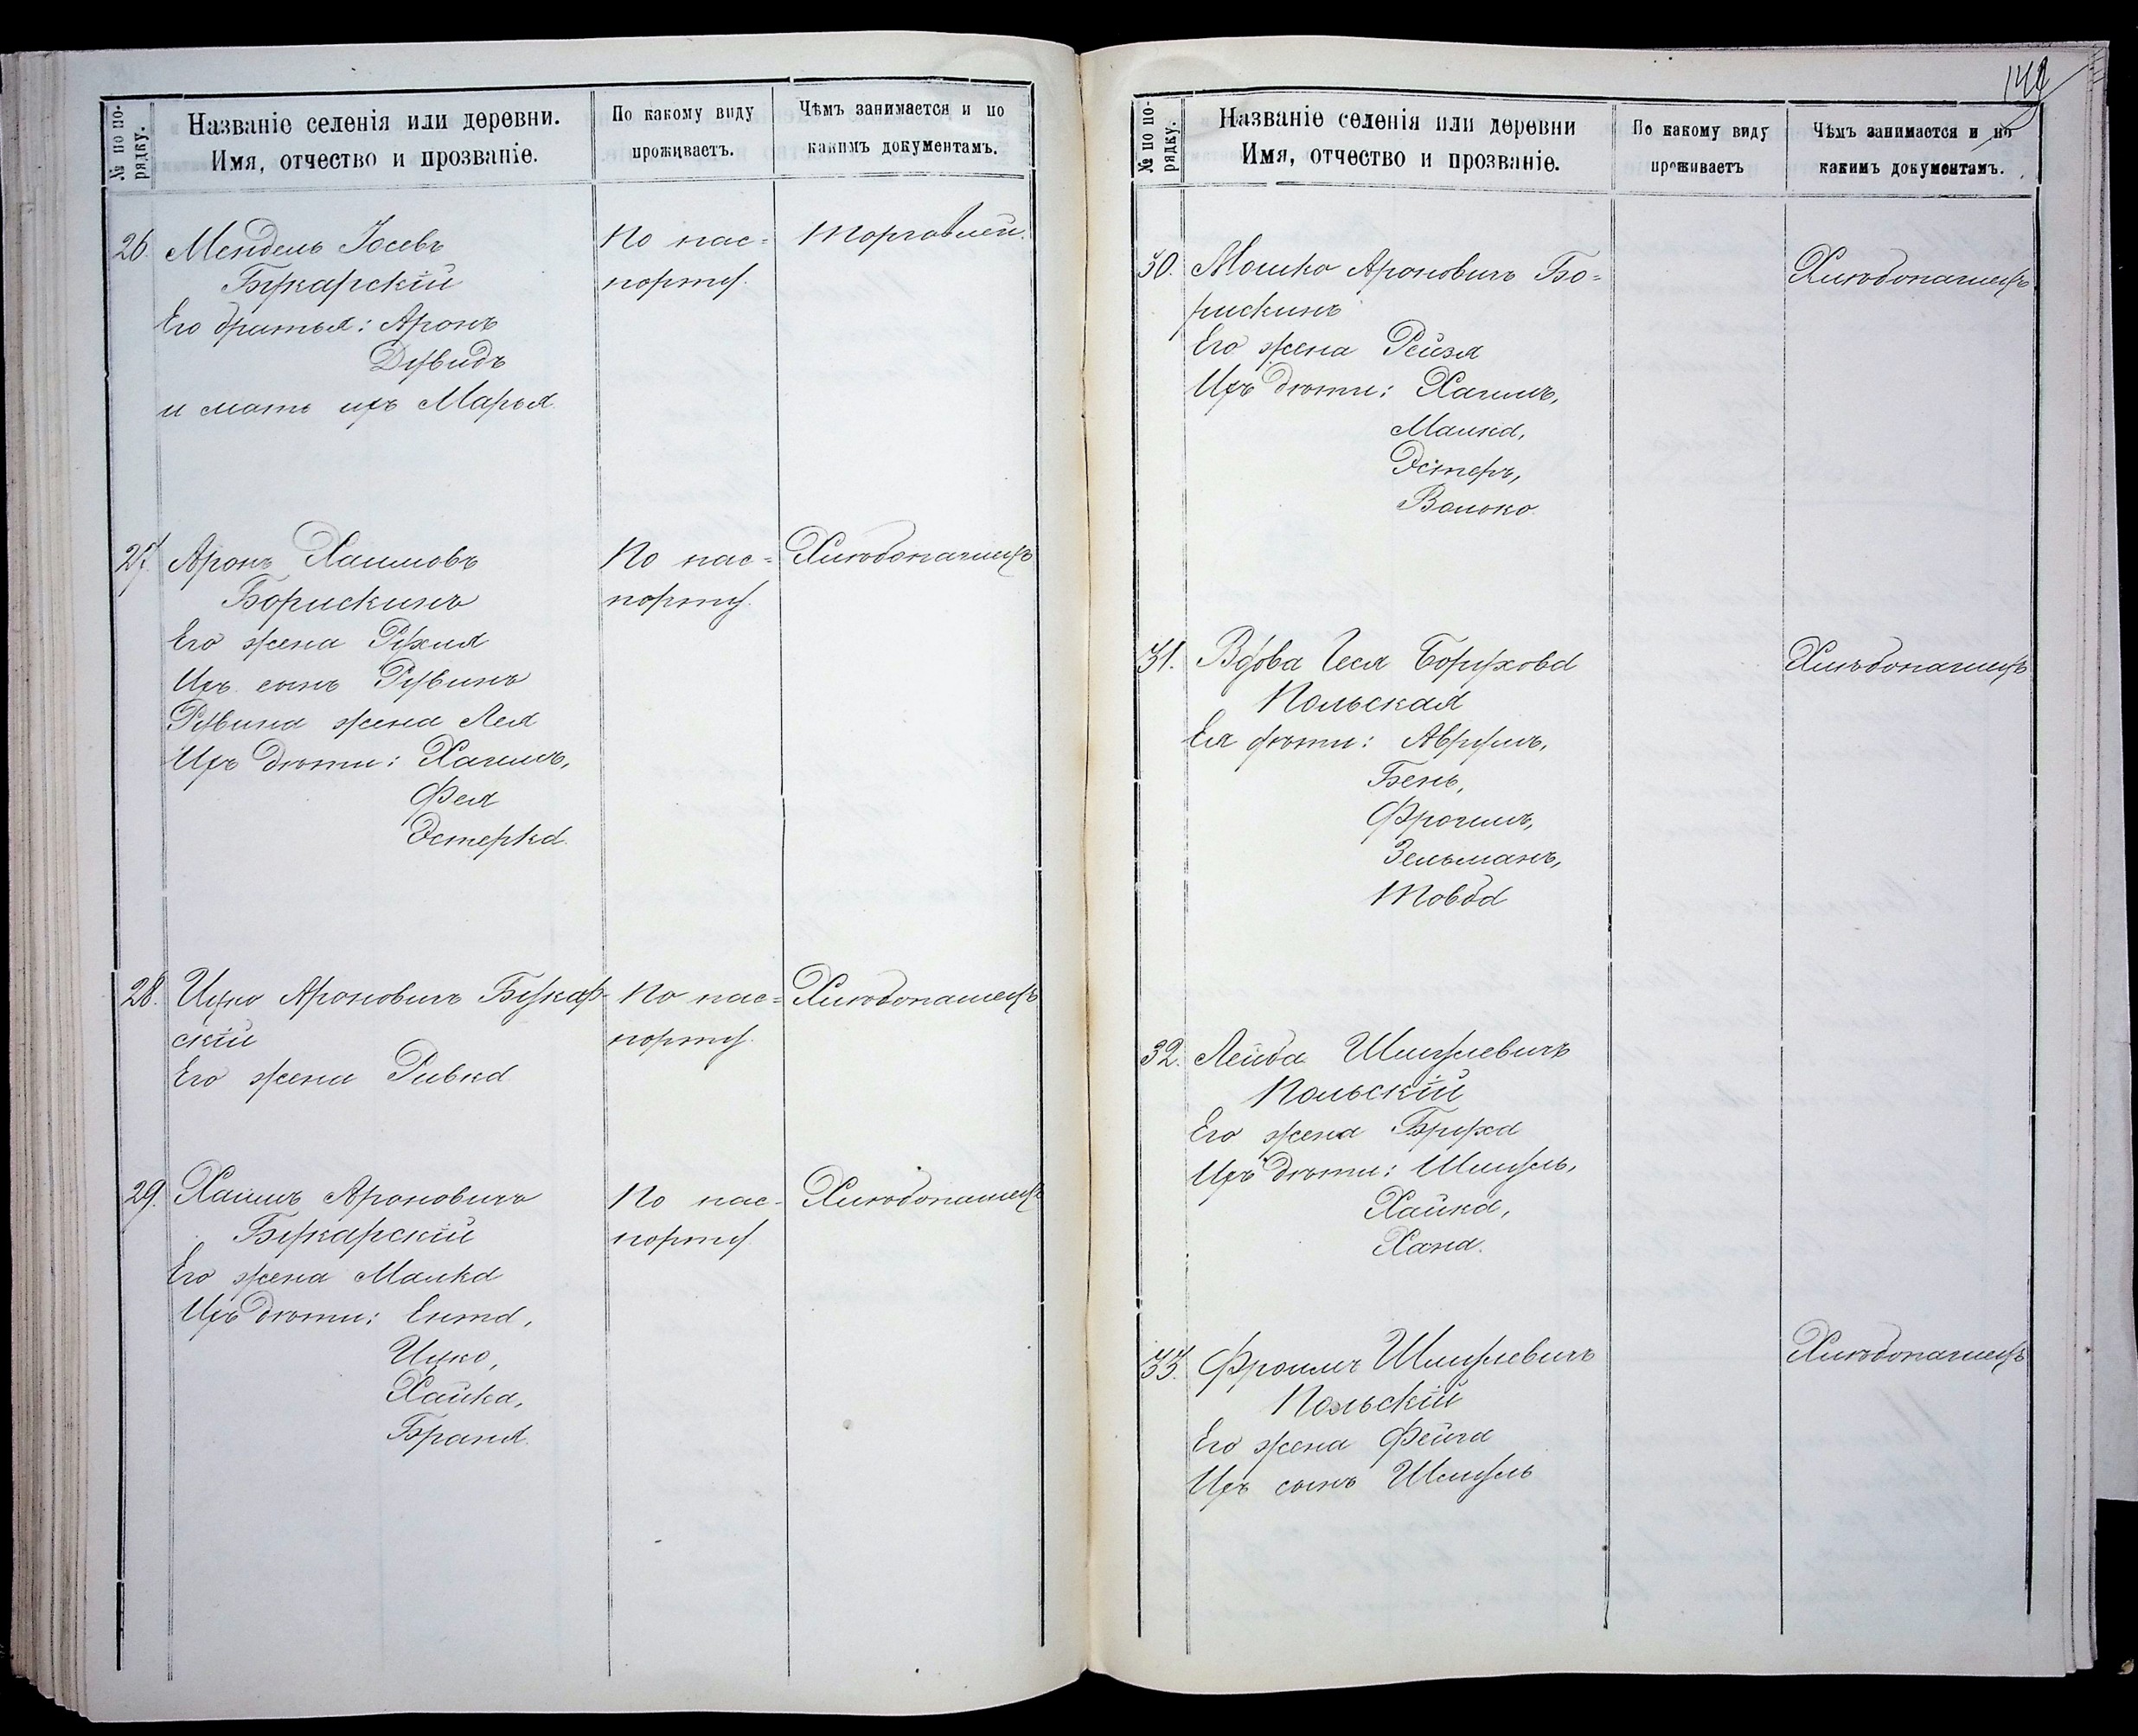 № по по-
рядку.
Названіе селенія или деревни.
Имя, отчество и прозваніе.
По какому виду
проживаетъ.
Чѣмъ занимается и по
какимъ документамъ.
26. Мендель Іосевъ По пас= торговлей.
Букарскій порту.
Его братья: Аронъ
Дувидъ
и мать ихъ Марья.
27. Аронъ Хаимовъ По пас= Хлѣбопашецъ
Борискинъ порту.
Его жена Рухля
Ихъ сынъ Рувинъ
Рувина жена Лея
Ихъ дѣти: Хаимъ,
Фея
Эстерка.
28. Ицко Ароновичъ Букар- По пас= Хлѣбопашецъ
скій порту.
Его жена Ривка
29. Хаимъ Ароновичъ По пас- Хлѣбопашецъ
Букарскій порту.
Его жена Малка
Ихъ дѣти: Ента,
Ицко,
Хайка,
Браня.
142
№ по по-
рядку.
Названіе селенія или деревни
Имя, отчество и прозваніе.
По какому виду
проживаетъ
Чѣмъ занимается и по
какимъ документамъ.
30. Мошко Ароновичъ Бо= Хлѣбопашецъ
рискинъ
Его жена Рейзя
Ихъ дѣти: Хаимъ,
Малка,
Эстеръ,
Волько.
31. Вдова Геся Борухова Хлѣбопашецъ
Польская
Ея дѣти: Аврумъ,
Бень,
Фроимъ,
Зельманъ,
Товба
32. Лейба Шмулевичъ
Польскій
Его жена Бруха
Ихъ дѣти: Шмуль,
Хайка,
Хана.
33. Фроимъ Шмулевичъ Хлѣбопашецъ
Польскій
Его жена Фейга
Ихъ сынъ Шмуль